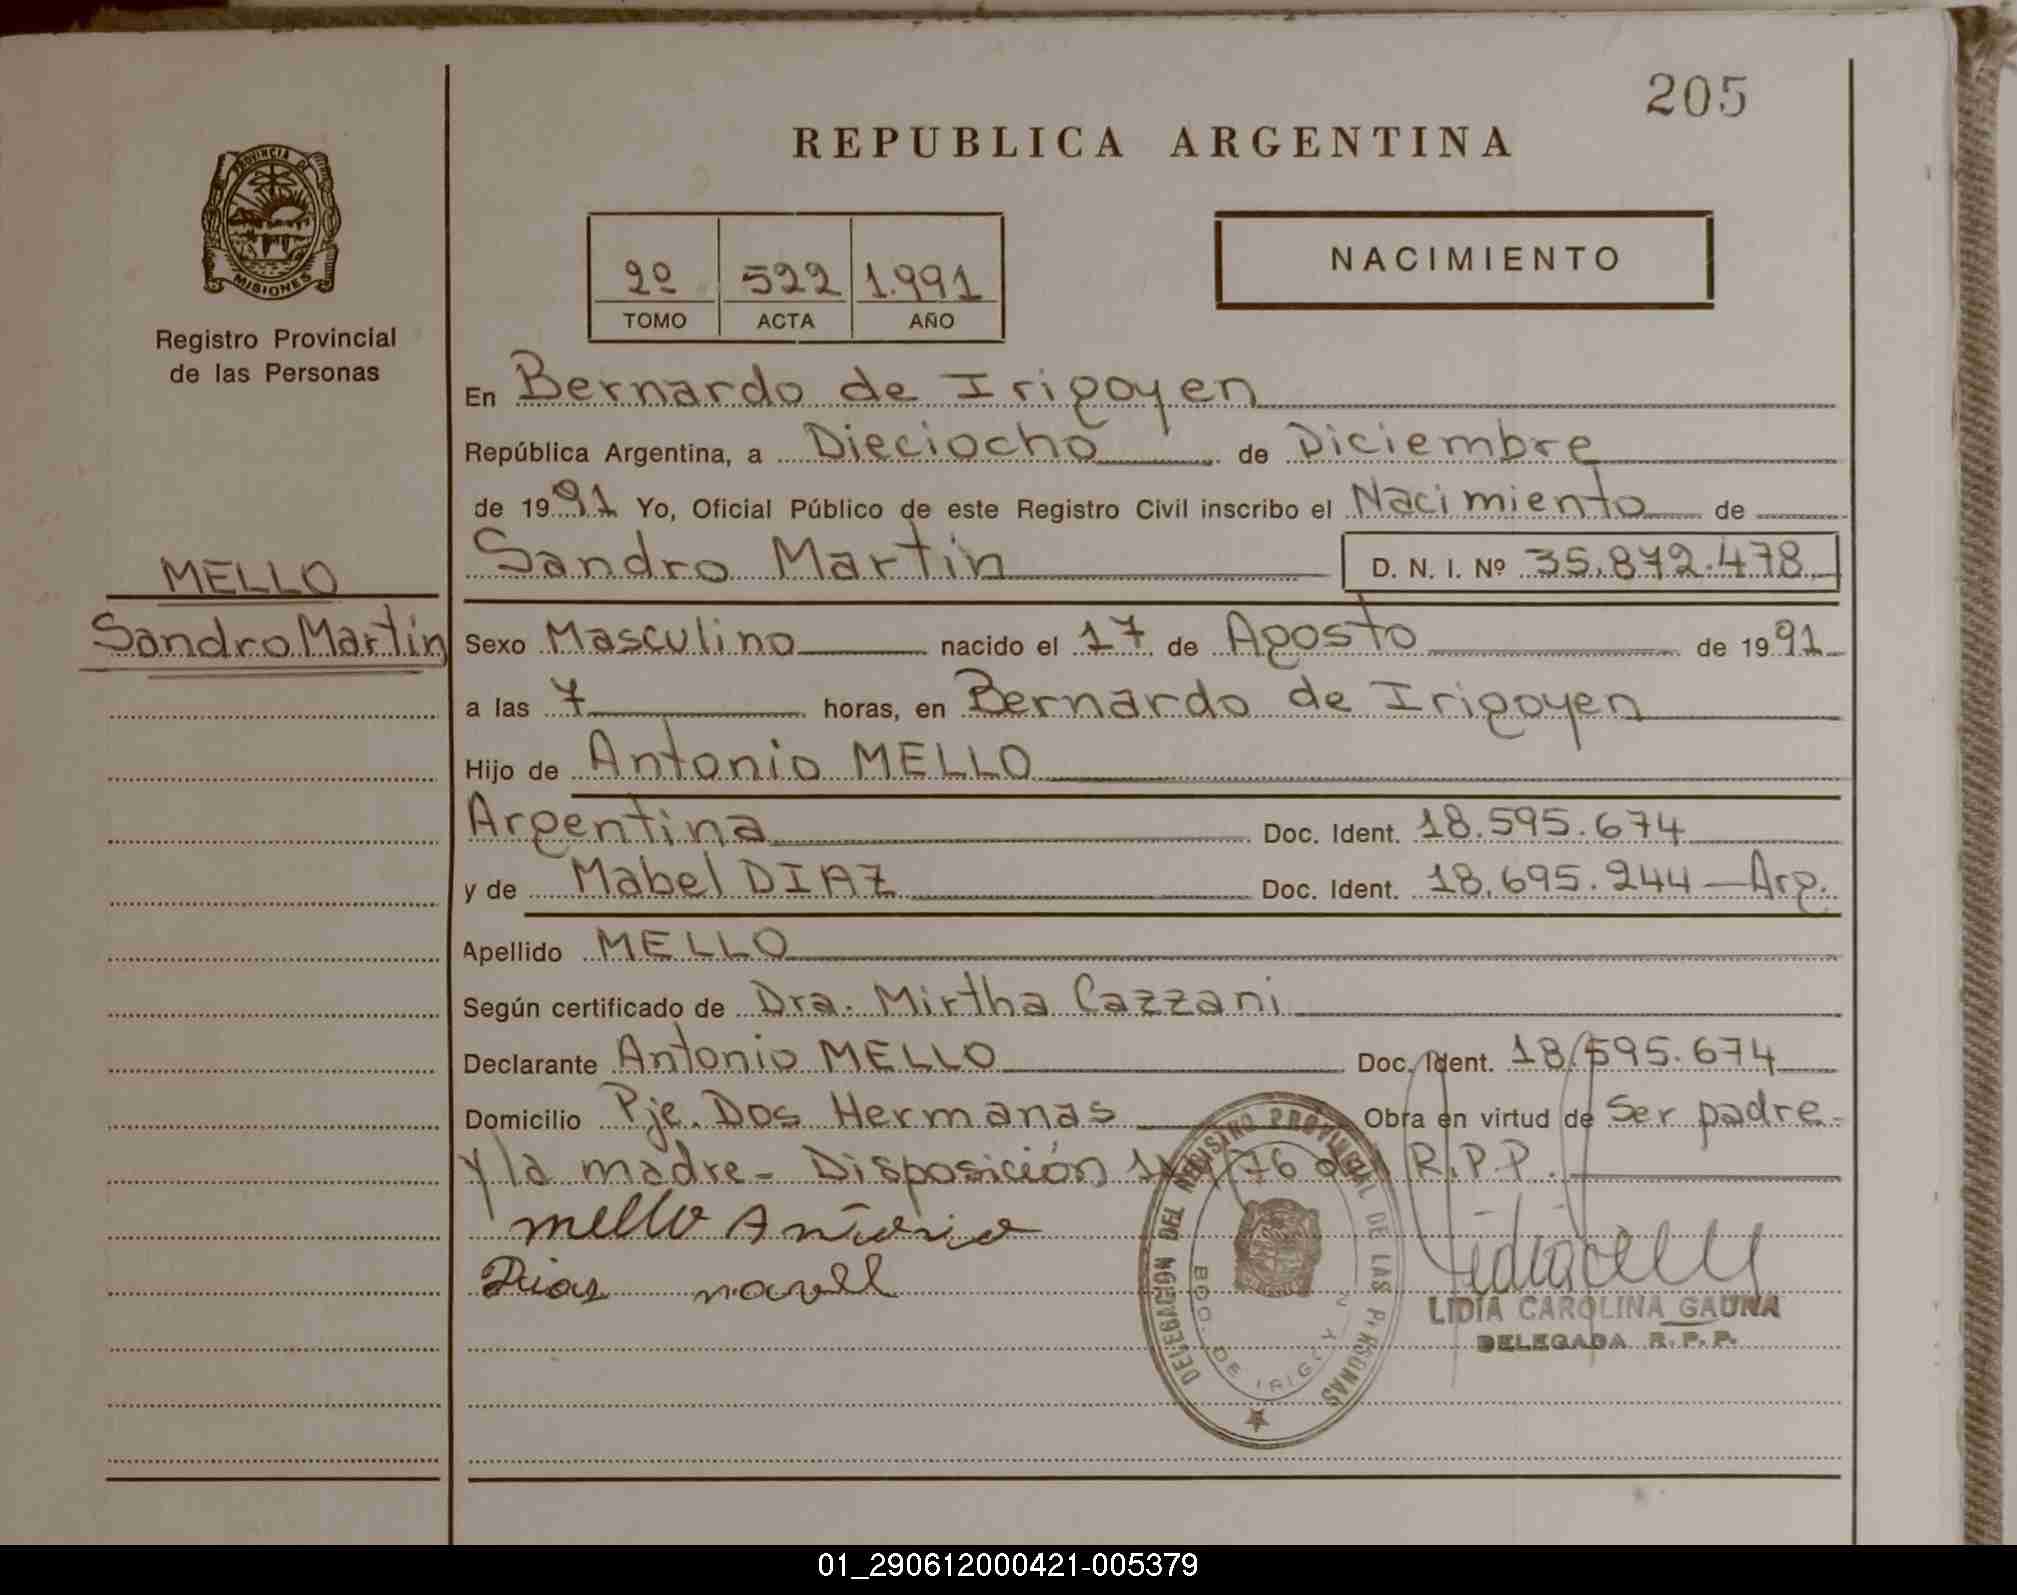 205
REPUBLICA ARGENTINA
PROVINCIA DE
MISIONES
Registro Provincial
de las Personas
2º 522 1.991
TOMO ACTA AÑO
NACIMIENTO
En Bernardo de Irigoyen
República Argentina, a Dieciocho de Diciembre
de 1991 Yo, Oficial Público de este Registro Civil inscribo el Nacimiento de
Sandro Martin D. N. I. Nº 35.872.478
MELLO
Sandro Martin
Sexo Masculino nacido el 17 de Agosto de 1991
a las 7 horas, en Bernardo de Irigoyen
Hijo de Antonio MELLO
Argentina Doc. Ident. 18.595.674
y de Mabel DIAZ Doc. Ident. 18.695.244 - Arg.
Apellido MELLO
Según certificado de Dra. Mirtha Cazzani
Declarante Antonio MELLO Doc. Ident. 18.595.674
Domicilio Pje. Dos Hermanas Obra en virtud de Ser padre-
y la madre- Disposición /76 del R.P.P.
mello Antonio
Dias
DELEGACION DEL REGISTRO PROVINCIAL DE LAS PERSONAS
BDO. DE IRIGOYEN
LIDIA CAROLINA GAUNA
DELEGADA R. P. P.
01_290612000421-005379